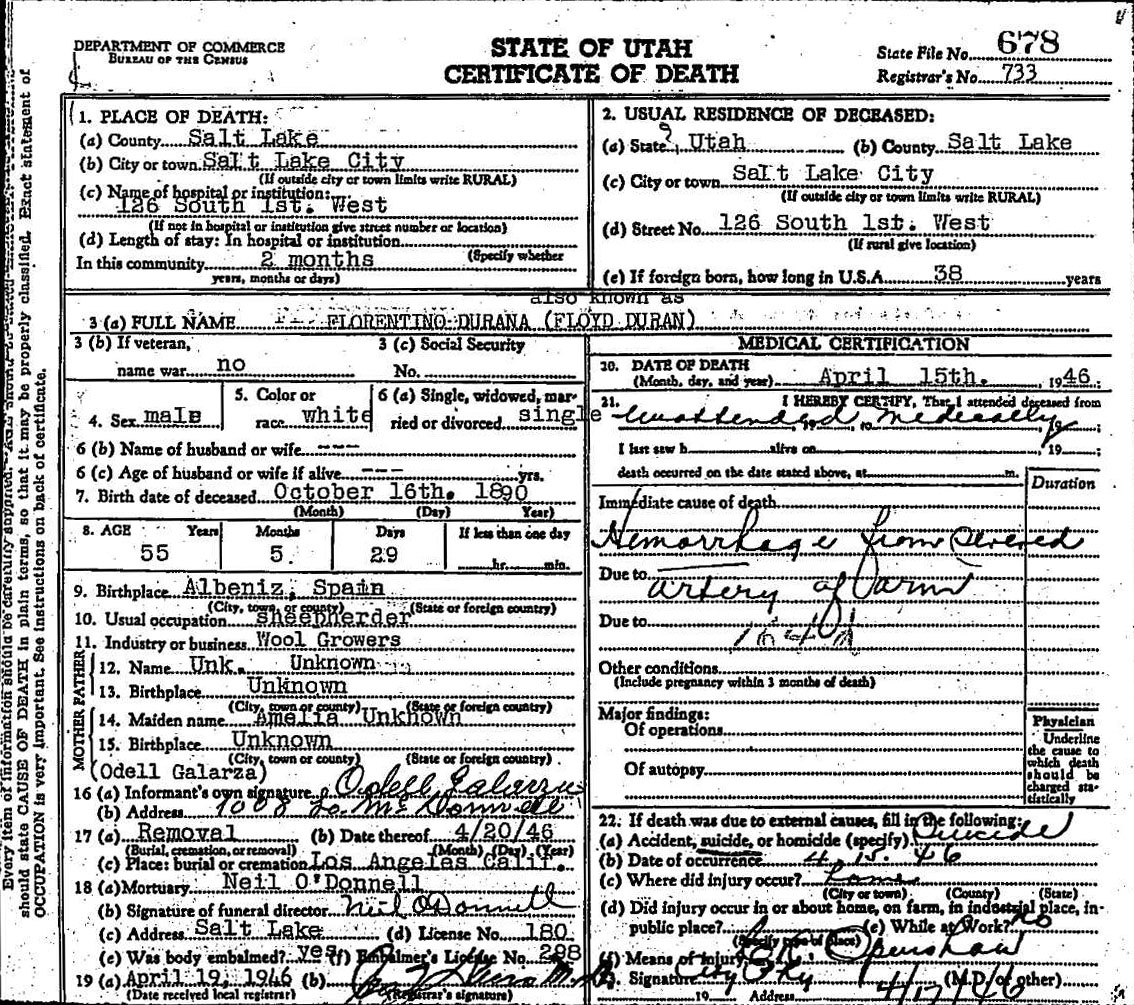 DEPARTMENT OF COMMERCE
BUREAU OF THE CENSUS
STATE OF UTAH
CERTIFICATE OF DEATH
State File No. 678
Registrar's No. 733
Every item of information should be carefully supplied.
should state CAUSE OF DEATH in plain terms, so that it may be properly classified. Exact statement of
OCCUPATION is very important. See instructions on back of certificate.
1. PLACE OF DEATH:
(a) County Salt Lake
(b) City or town Salt Lake City
(If outside city or town limits write RURAL)
(c) Name of hospital or institution:
126 South 1st. West
(If not in hospital or institution give street number or location)
(d) Length of stay: In hospital or institution
(Specify whether
In this community 2 months
years, months or days)
2. USUAL RESIDENCE OF DECEASED:
(a) State Utah (b) County Salt Lake
(c) City or town Salt Lake City
(If outside city or town limits write RURAL)
(d) Street No. 126 South 1st. West
(If rural give location)
(e) If foreign born, how long in U.S.A. 38 years
also known as
3 (a) FULL NAME --- FLORENTINO DURANA (FLOYD DURAN)
3 (b) If veteran, name war no
3 (c) Social Security No.
4. Sex male
5. Color or race white
6 (a) Single, widowed, married or divorced single
6 (b) Name of husband or wife ---
6 (c) Age of husband or wife if alive --- yrs.
7. Birth date of deceased October 16th. 1890
(Month) (Day) Year)
8. AGE Years Months Days If less than one day
55 5 29 hr. min.
9. Birthplace Albeniz, Spain
(City, town, or county) (State or foreign country)
10. Usual occupation sheepherder
11. Industry or business Wool Growers
FATHER
12. Name Unk. Unknown
13. Birthplace Unknown
(City, town or county) (State or foreign country)
MOTHER
14. Maiden name Amelia Unknown
15. Birthplace Unknown
(City, town or county) (State or foreign country)
(Odell Galarza)
16 (a) Informant's own signature Odell Galarza
(b) Address 1008 So. McDonnell
17 (a) Removal (b) Date thereof 4/20/46
(Burial, cremation, or removal) (Month) (Day) (Year)
(c) Place: burial or cremation Los Angeles Calif.
18 (a) Mortuary Neil O'Donnell
(b) Signature of funeral director Neil O'Donnell
(c) Address Salt Lake (d) License No. 180
(e) Was body embalmed? yes (f) Embalmer's License No. 298
19 (a) April 19, 1946 (b)
(Date received local registrar) (Registrar's signature)
MEDICAL CERTIFICATION
20. DATE OF DEATH
(Month, day, and year) April 15th. 1946
21. I HEREBY CERTIFY, That I attended deceased from
Unattended, 19 , to Medically 19 ;
I last saw h alive on , 19 ;
death occurred on the date stated above, at m.
Duration
Immediate cause of death
Hemorrhage from severed
Due to artery of arm
Due to
Other conditions
(Include pregnancy within 3 months of death)
Major findings:
Of operations
Of autopsy
Physician
Underline
the cause to
which death
should be
charged sta-
tistically
22. If death was due to external causes, fill in the following:
(a) Accident, suicide, or homicide (specify) Suicide
(b) Date of occurrence 4.15.46
(c) Where did injury occur? home
(City or town) (County) (State)
(d) Did injury occur in or about home, on farm, in industrial place, in-
public place? (e) While at Work? no
(Specify type of place)
(f) Means of Injury
Signature (M.D. or other)
19 Address 4/17/46